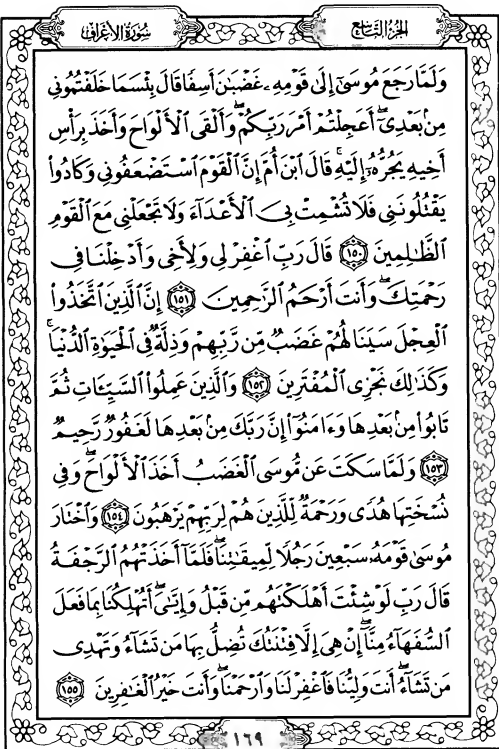 الجزء التاسع
سورة الأعراف
وَلَمَّا رَجَعَ مُوسَىٰٓ إِلَىٰ قَوْمِهِۦ غَضْبَٰنَ أَسِفًا قَالَ بِئْسَمَا خَلَفْتُمُونِى
مِنۢ بَعْدِىٓ ۖ أَعَجِلْتُمْ أَمْرَ رَبِّكُمْ ۖ وَأَلْقَى ٱلْأَلْوَاحَ وَأَخَذَ بِرَأْسِ
أَخِيهِ يَجُرُّهُۥٓ إِلَيْهِ ۚ قَالَ ٱبْنَ أُمَّ إِنَّ ٱلْقَوْمَ ٱسْتَضْعَفُونِى وَكَادُوا۟
يَقْتُلُونَنِى فَلَا تُشْمِتْ بِىَ ٱلْأَعْدَآءَ وَلَا تَجْعَلْنِى مَعَ ٱلْقَوْمِ
ٱلظَّٰلِمِينَ ١٥٠ قَالَ رَبِّ ٱغْفِرْ لِى وَلِأَخِى وَأَدْخِلْنَا فِى
رَحْمَتِكَ ۖ وَأَنتَ أَرْحَمُ ٱلرَّٰحِمِينَ ١٥١ إِنَّ ٱلَّذِينَ ٱتَّخَذُوا۟
ٱلْعِجْلَ سَيَنَالُهُمْ غَضَبٌ مِّن رَّبِّهِمْ وَذِلَّةٌ فِى ٱلْحَيَوٰةِ ٱلدُّنْيَا ۚ
وَكَذَٰلِكَ نَجْزِى ٱلْمُفْتَرِينَ ١٥٢ وَٱلَّذِينَ عَمِلُوا۟ ٱلسَّيِّـَٔاتِ ثُمَّ
تَابُوا۟ مِنۢ بَعْدِهَا وَءَامَنُوٓا۟ إِنَّ رَبَّكَ مِنۢ بَعْدِهَا لَغَفُورٌ رَّحِيمٌ
١٥٣ وَلَمَّا سَكَتَ عَن مُّوسَى ٱلْغَضَبُ أَخَذَ ٱلْأَلْوَاحَ ۖ وَفِى
نُسْخَتِهَا هُدًى وَرَحْمَةٌ لِّلَّذِينَ هُمْ لِرَبِّهِمْ يَرْهَبُونَ ١٥٤ وَٱخْتَارَ
مُوسَىٰ قَوْمَهُۥ سَبْعِينَ رَجُلًا لِّمِيقَٰتِنَا ۖ فَلَمَّآ أَخَذَتْهُمُ ٱلرَّجْفَةُ
قَالَ رَبِّ لَوْ شِئْتَ أَهْلَكْتَهُم مِّن قَبْلُ وَإِيَّٰىَ ۖ أَتُهْلِكُنَا بِمَا فَعَلَ
ٱلسُّفَهَآءُ مِنَّآ ۖ إِنْ هِىَ إِلَّا فِتْنَتُكَ تُضِلُّ بِهَا مَن تَشَآءُ وَتَهْدِى
مَن تَشَآءُ ۖ أَنتَ وَلِيُّنَا فَٱغْفِرْ لَنَا وَٱرْحَمْنَا ۖ وَأَنتَ خَيْرُ ٱلْغَٰفِرِينَ ١٥٥
١٦٩